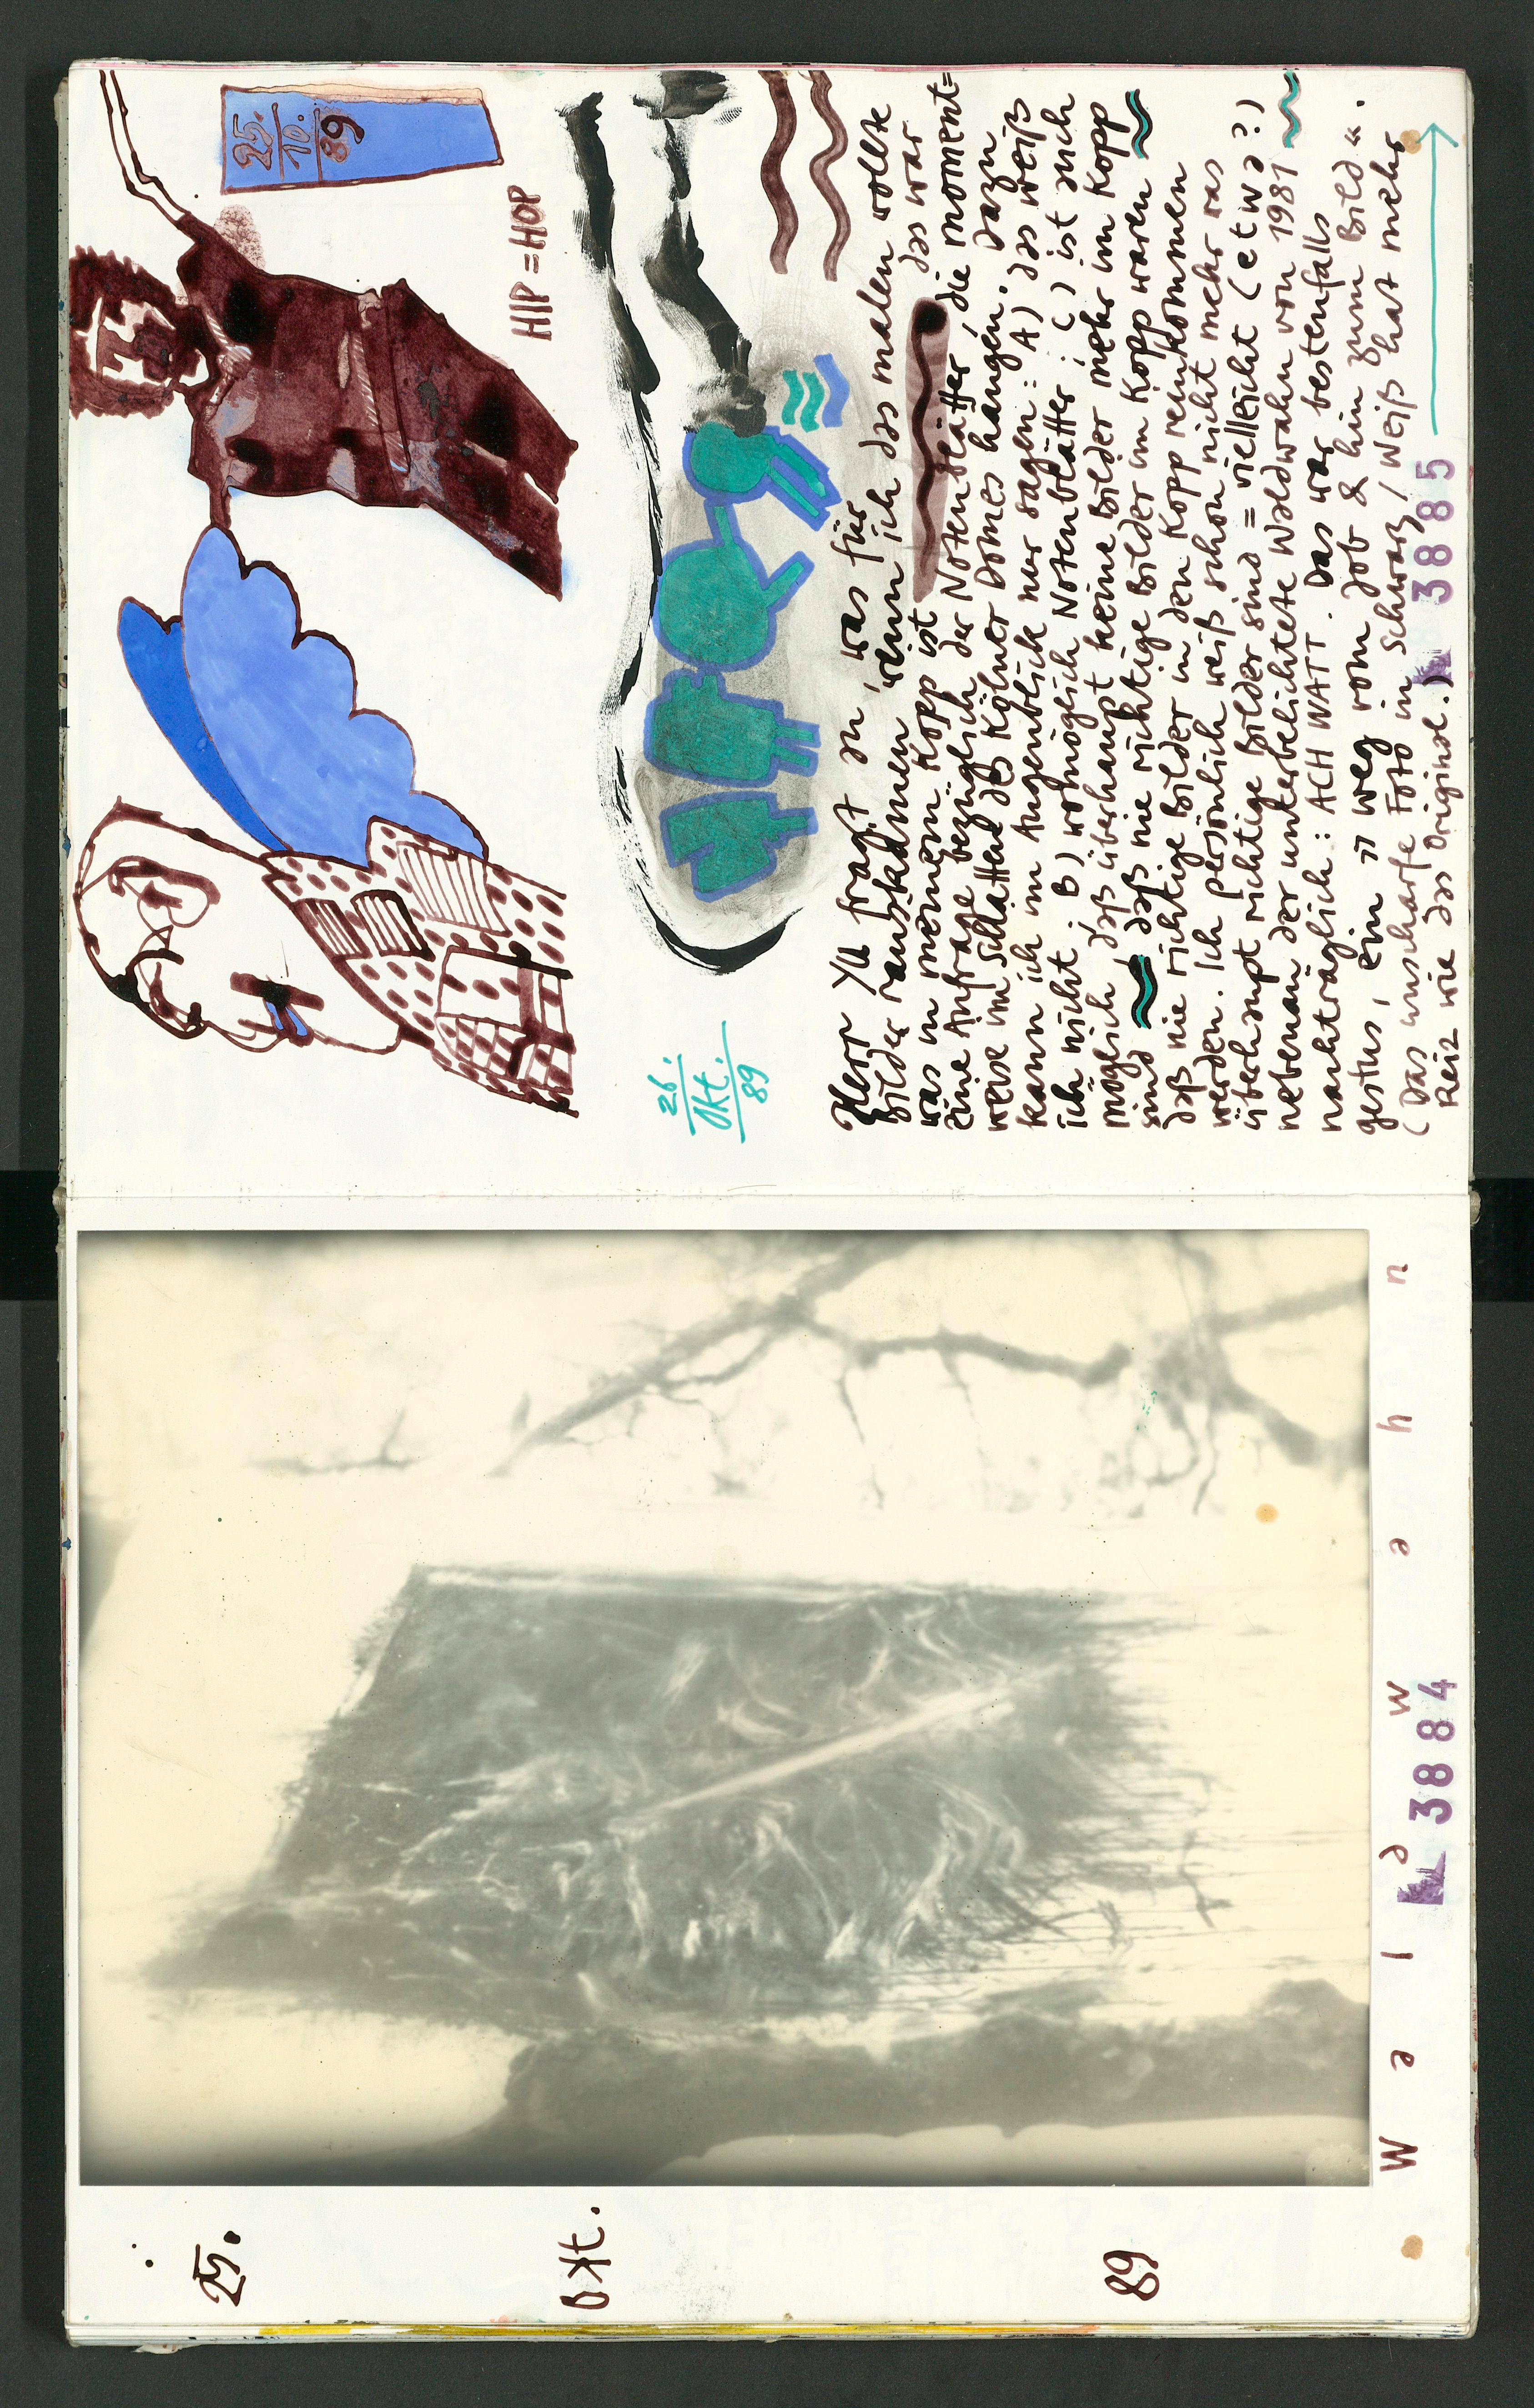 25.
Okt.
89
Waldwehn
3884
25.
10.
89
HIP = HOP
26.
Okt.
89
Herr YU fragt an, was für
Bilder rauskämen wenn ich das malen wollte
was in meinem Kopp ist das war
eine Anfrage bezüglich der Notenblätter, die moment=
weise im Schatten des Kölner Domes hängen. Dazu
kann ich im Augenblick nur sagen: A) das weiß
ich nicht; B) womöglich Notenblätter; C) ist auch
möglich, daß überhaupt keine Bilder mehr im Kopp
sind daß nie richtige Bilder im Kopp waren
daß nie richtige Bilder in den Kopp reinkommen
werden. Ich persönlich weiß schon nicht mehr was
überhaupt richtige Bilder sind = vielleicht (etwa?)
nebenan der unterbelichtete Waldwahn von 1981
nachträglich: ACH WATT. Das war bestenfalls
gestus, ein "weg vom Job & hin zum Bild".
(Das unscharfe Foto in Schwarz/Weiß hat mehr
Reiz wie das Original.)
3885